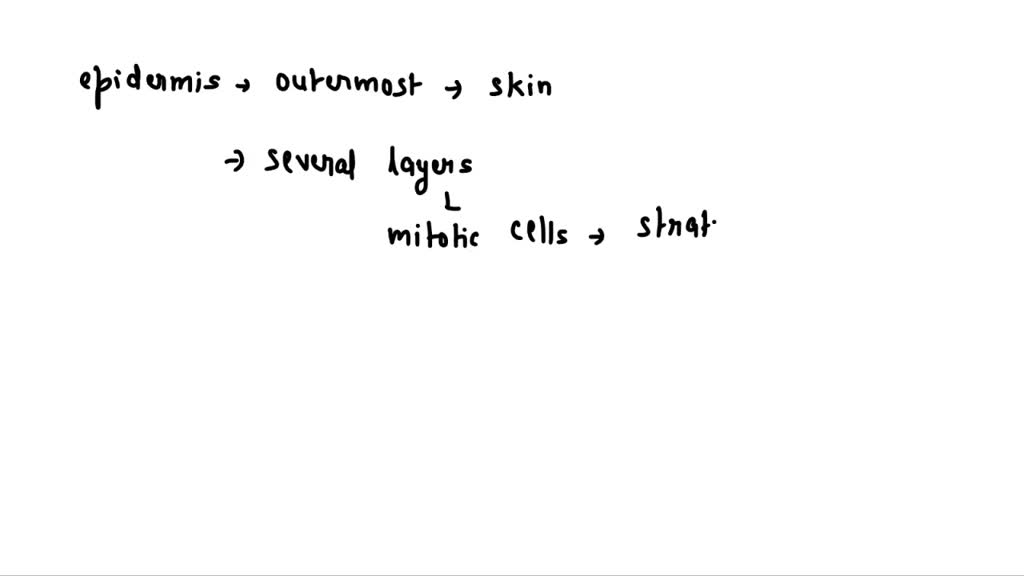 epidermis → outermost → skin
→ several layers
mitotic cells → strat